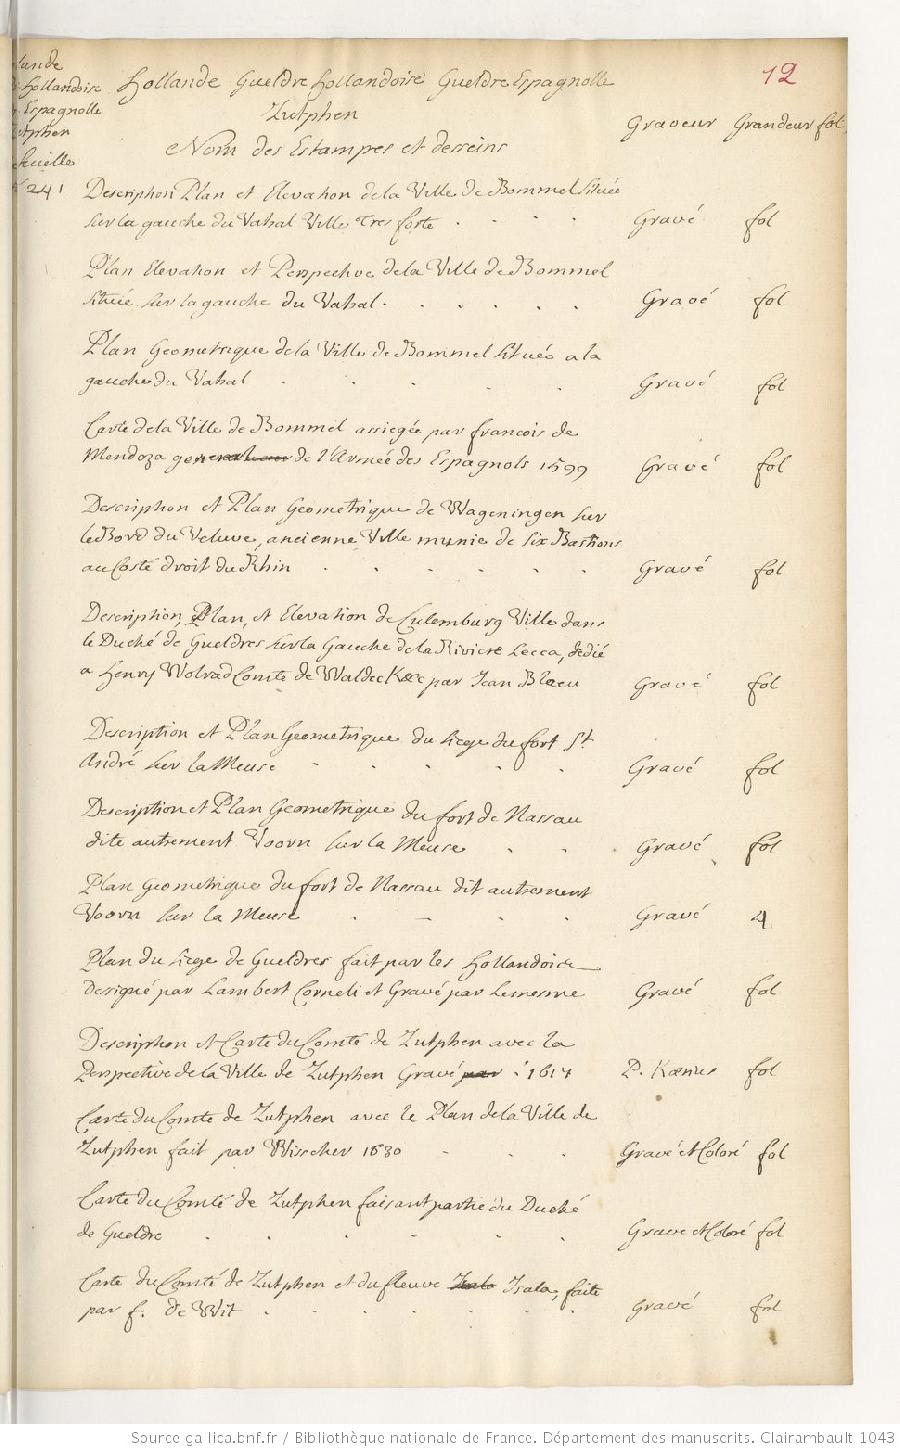 12
Hollande Gueldre Hollandoise Gueldre Espagnolle
Zutphen
Graveur Grandeur fol.
Nom des Estampes et desseins
lande
Hollandoise
Espagnolle
utphen
241
Description Plan et Elevation de la Ville de Bommel Située
sur la gauche du Vahal Ville Tres forte . . . . Gravé fol
Plan Elevation et Perspective de la Ville de Bommel
Située sur la gauche du Vahal . . . . . Gravé fol
Plan Geometrique de la Ville de Bommel Située a la
gauche du Vahal . . . . . Gravé fol
Carte de la Ville de Bommel assiegée par francois de
Mendoza de l'Armée des Espagnols 1599 Gravé fol
Description et Plan Geometrique de Wageningen sur
le Bord du Veluve, ancienne Ville munie de Six Bastions
au Costé droit du Rhin . . . . . . Gravé fol
Description, Plan, et Elevation de Culemburg Ville dans
le Duché de Gueldres sur la Gauche de la Riviere Lecca, dedié
a Henry Wolrad Comte de Waldeck &c par Jean Blaeu Gravé fol
Description et Plan Geometrique du siege du fort St
André sur la Meuse . . . . . Gravé fol
Description et Plan Geometrique du fort de Nassau
dite autrement Voorn sur la Meuse . . Gravé fol
Plan Geometrique du fort de Nassau dit autrement
Voorn sur la Meuse . . . . Gravé 4
Plan du siege de Gueldres fait par les Hollandois
Designé par Lambert Corneli et Gravé par Lemesme Gravé fol
Description et Carte du Comté de Zutphen avec la
Perspective de la Ville de Zutphen Gravé par P. Kærius fol
Carte du Comté de Zutphen avec le Plan de la Ville de
Zutphen fait par Visscher 1630 . . . Gravé et Coloré fol
Carte du Comté de Zutphen faisant partie du Duché
de Gueldre . . . . . . Gravé et Coloré fol
Carte du Comté de Zutphen et du fleuve Isala, faite
par f. de Wit . . . . . . Gravé fol
Source gallica.bnf.fr / Bibliothèque nationale de France. Département des manuscrits. Clairambault 1043